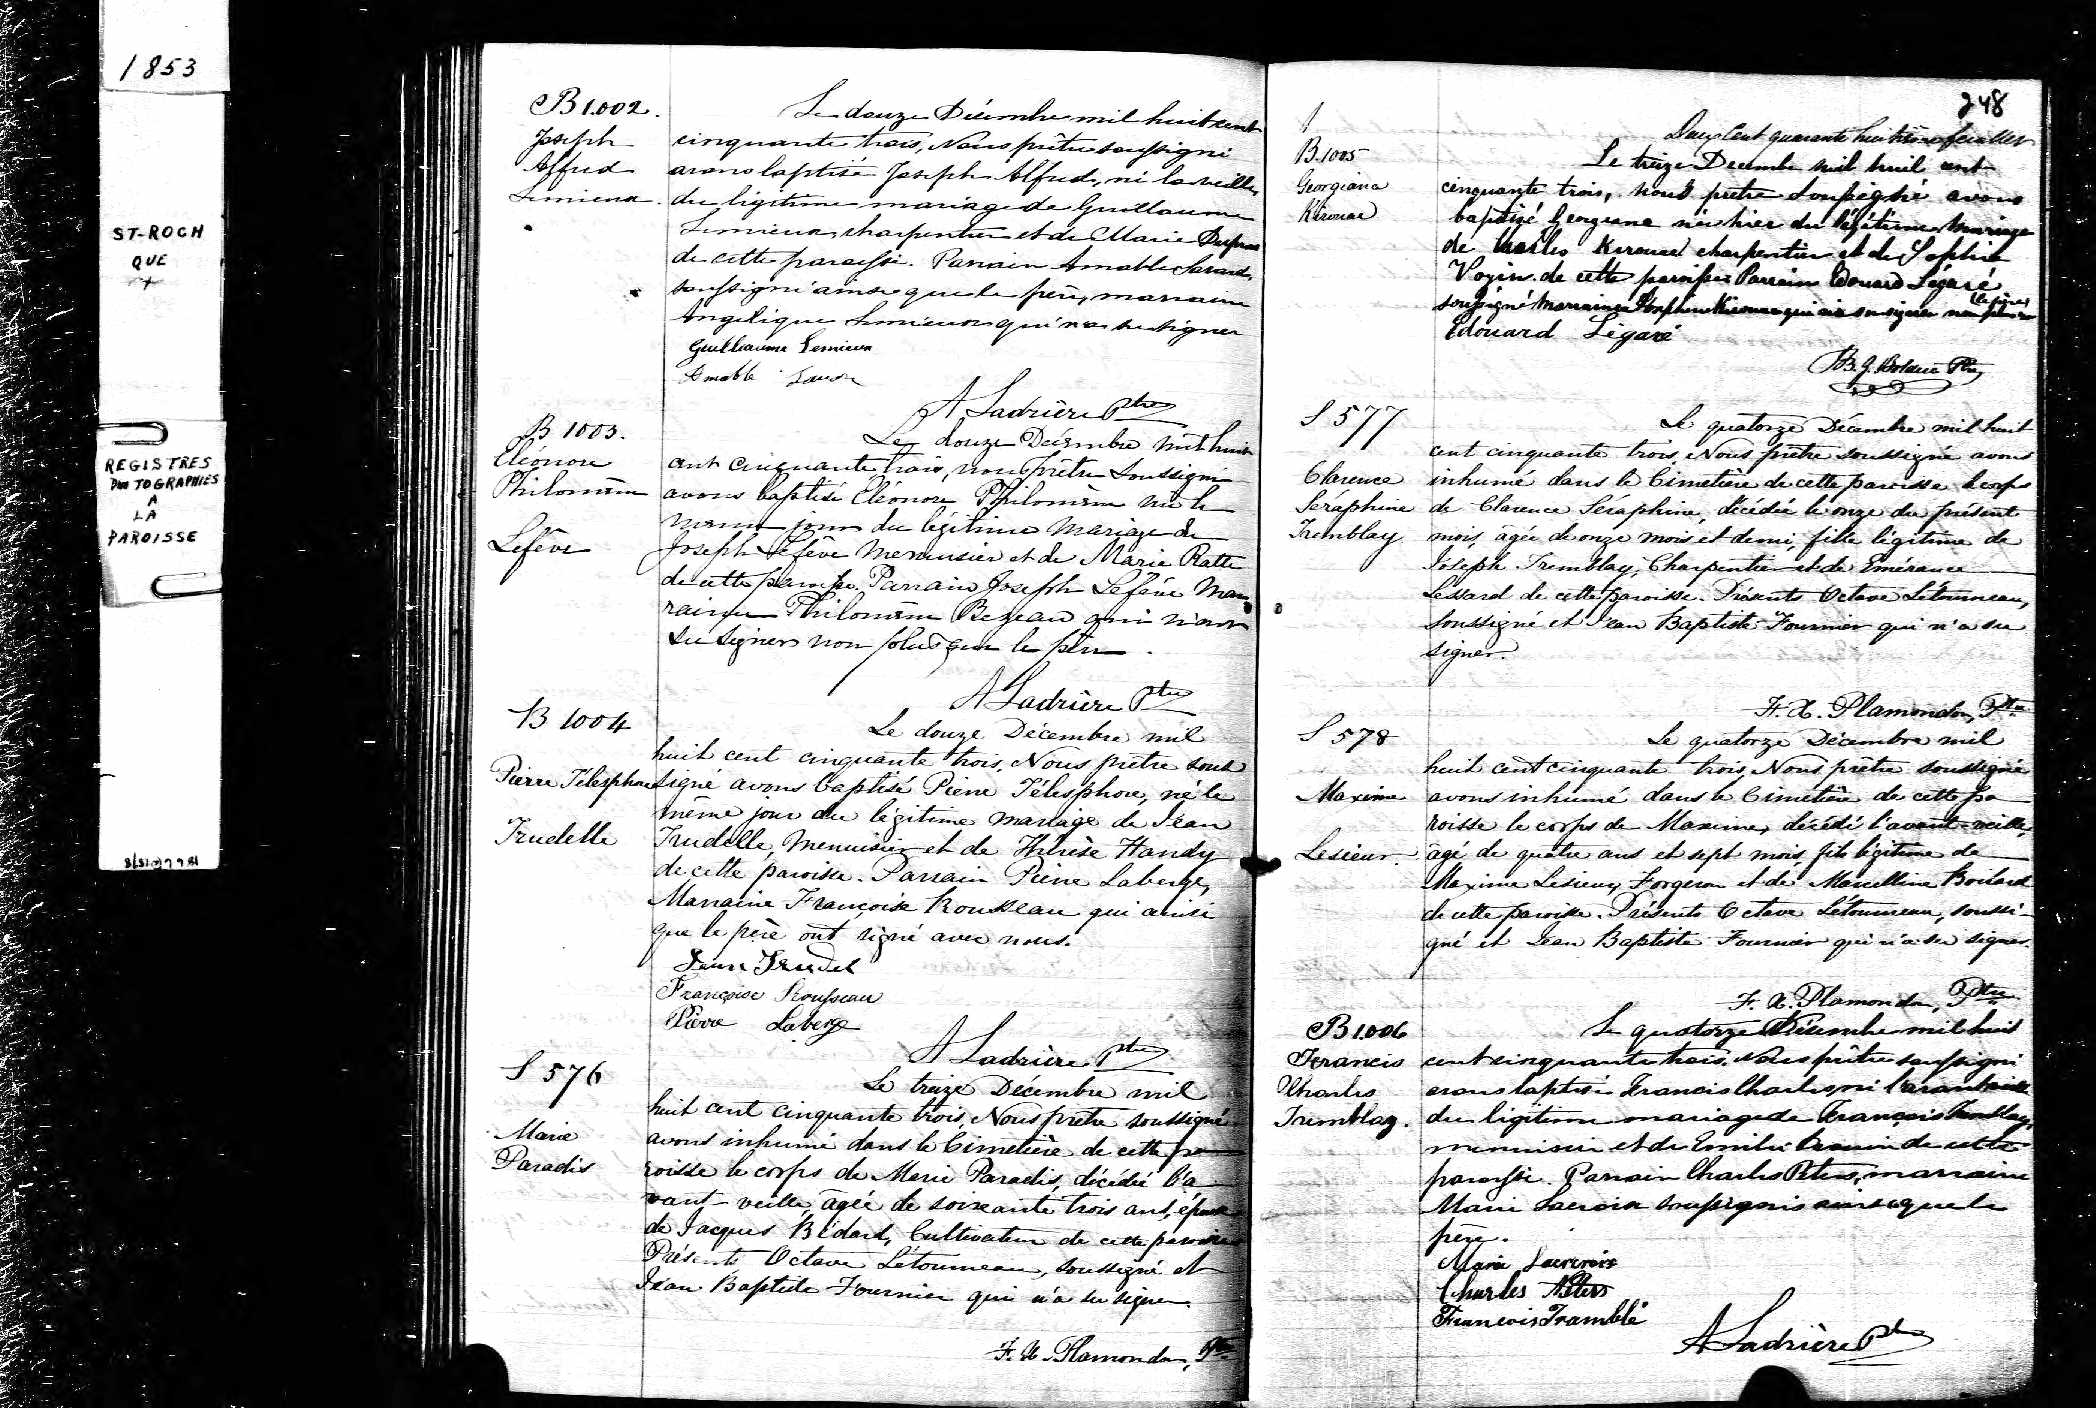 1853
ST-ROCH
QUE
REGISTRES
PHOTOGRAPHIES
A
LA
PAROISSE
B 1.002.
Joseph
Alfred
Lemieux.
Le douze Décembre mil huit cent
cinquante trois, Nous prêtre soussigné
avons baptisé Joseph Alfred, né la veille,
du légitime mariage de Guillaume
Lemieux, charpentier et de Marie
de cette paroisse. Parrain Amable Savard,
soussigné ainsi que le père, marraine
Angelique Lemieux qui n'a su signer
Guillaume Lemieux
Amable
A Ladrière Ptre
B 1003.
Eléonore
Philomène
Lefêvre
Le douze Décembre mil huit
cent cinquante trois, nous prêtre soussigné
avons baptisé Eléonore Philomène née le
même jour du légitime mariage de
Joseph Lefêvre menuisier et de Marie Ratté
de cette paroisse. Parrain Joseph Lefêvre Mar
raine Philomène Bezeau qui n'ont
su signer non plus que le père.
A Ladrière Ptre
B 1004
Pierre Télesphore
Trudelle
Le douze Décembre mil
huit cent cinquante trois, Nous prêtre sous
signé avons baptisé Pierre Télesphore, né le
même jour du légitime mariage de Jean
Trudelle, Menuisier et de Thérèse Handy
de cette paroisse. Parrain Pierre Laberge,
Marraine Françoise Rousseau qui ainsi
que le père ont signé avec nous.
Jean Trudel
Françoise Rousseau
Pierre Laberge
A Ladrière Ptre
S 576
Marie
Paradis
Le treize Décembre mil
huit cent cinquante trois, Nous prêtre soussigné
avons inhumé dans le Cimetière de cette pa
roisse le corps de Marie Paradis, décédée l'a
vant-veille, âgée de soixante trois ans, épouse
de Jacques Bédard, Cultivateur de cette paroisse
Présents Octave Létourneau, soussigné et
Jean Baptiste Fournier qui n'a su signer.
F. X. Plamondon, Ptre
248
Deux Cent quarante huitième feuillet
B.1005
Georgiana
Kirouac
Le treize Decembre mil huit cent
cinquante trois, nous prêtre soussigné avons
baptisé Georgiana née hier du légitime mariage
de Charles Kirouac charpentier et de Sophie
Voyin de cette paroisse Parrain Edouard Légaré
soussigné Marraine Kirouac qui n'a su signer non plus
Edouard Légaré
B. J. Bolduc Ptre
S 577
Clarence
Séraphine
Tremblay
Le quatorze Décembre mil huit
cent cinquante trois, Nous prêtre soussigné avons
inhumé dans le Cimetière de cette paroisse le corps
de Clarence Séraphine, décédée le onze du présent
mois, âgée de onze mois et demi, fille légitime de
Joseph Tremblay, Charpentier et de Emérance
Lessard de cette paroisse. Présents Octave Létourneau,
soussigné et Jean Baptiste Fournier qui n'a su
signer.
F. X. Plamondon, Ptre
S 578
Maxime
Lesieur.
Le quatorze Décembre mil
huit cent cinquante trois, Nous prêtre soussigné
avons inhumé dans le Cimetière de cette pa
roisse le corps de Maxime, décédé l'avant-veille,
âgé de quatre ans et sept mois, fils légitime de
Maxime Lesieur, Forgeron et de Marcelline Boilard
de cette paroisse. Présents Octave Létourneau, soussi-
gné et Jean Baptiste Fournier qui n'a su signer.
F. X. Plamondon, Ptre
B 1.006
Francis
Charles
Tremblay.
Le quatorze Décembre mil huit
cent cinquante trois, Nous prêtre soussigné
avons baptisé Francis Charles, né l'avant veille
du légitime mariage de François Tremblay,
menuisier et de Emilie de cette
paroisse. Parrain Charles Peters, marraine
Marie Lacroix soussignés ainsi que le
père.
Marie Lacroix
Charles Peters
François Tramblé
A Ladrière Ptre